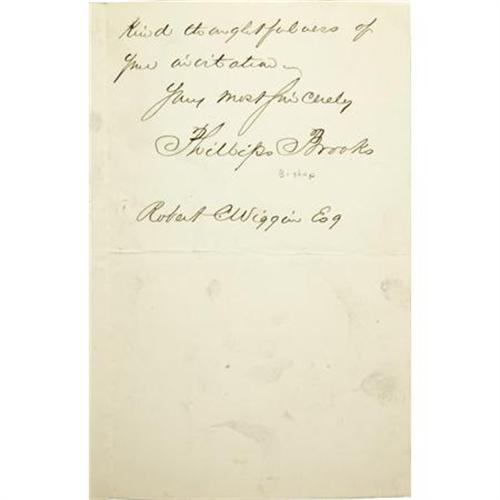 Kind thoughtfulness of
your invitation
Yours most sincerely
Phillips Brooks
Bishop
Robert C Wiggin Esq